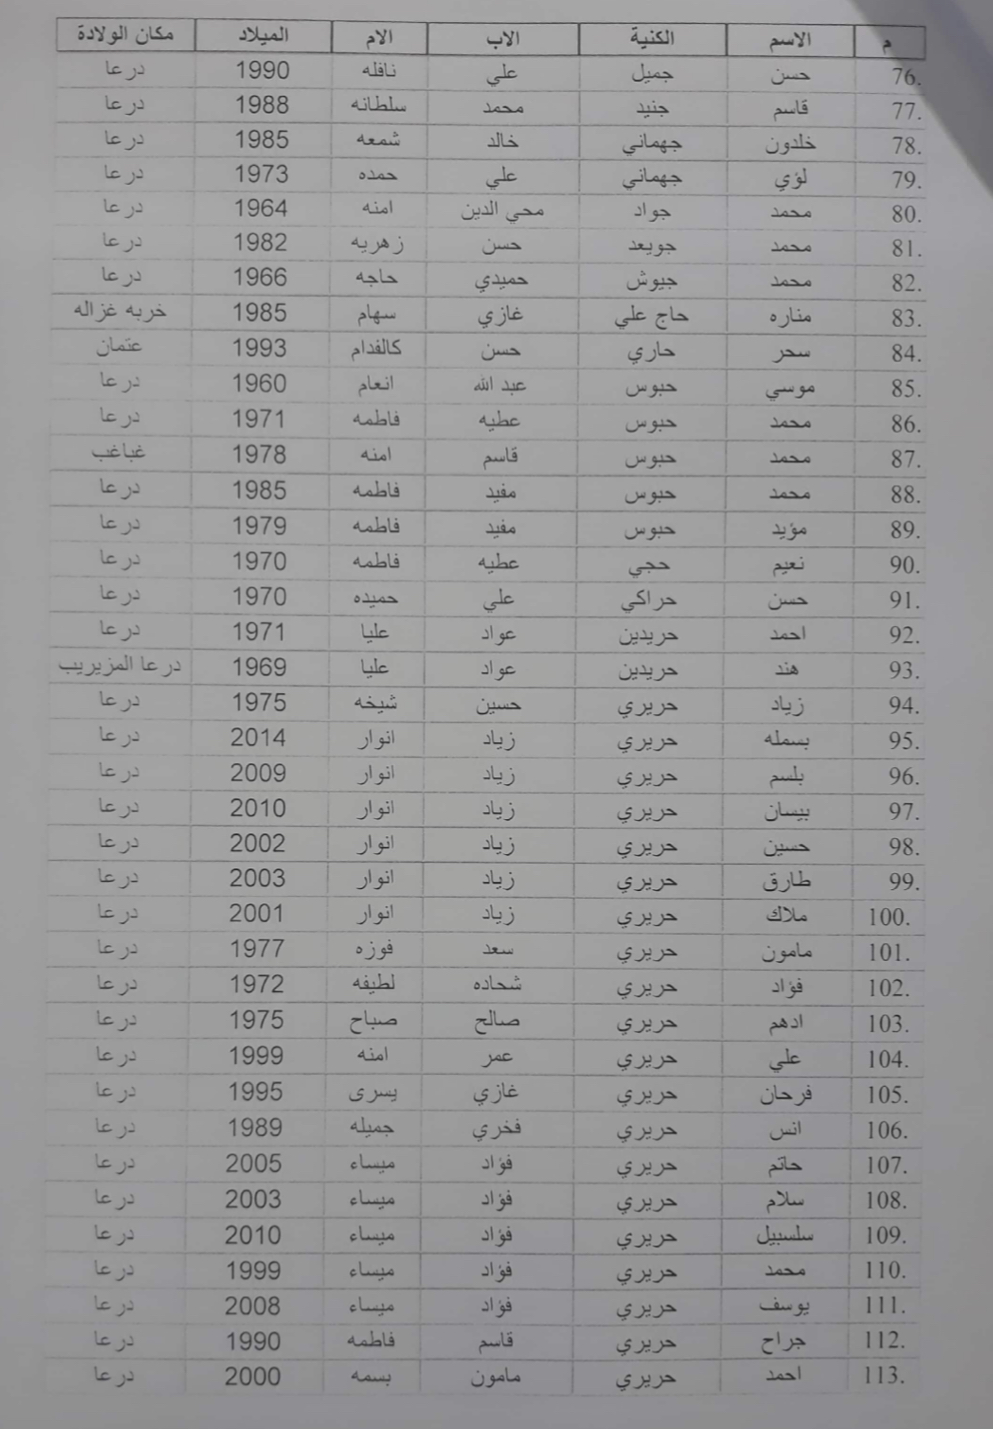 م الاسم الكنية الاب الام الميلاد مكان الولادة
76. حسن جميل علي نافله 1990 درعا
77. قاسم جنيد محمد سلطانه 1988 درعا
78. خلدون جهماني خالد شمعه 1985 درعا
79. لؤي جهماني علي حمده 1973 درعا
80. محمد جواد محي الدين امنه 1964 درعا
81. محمد جويعد حسن زهريه 1982 درعا
82. محمد جيوش حميدي حاجه 1966 درعا
83. مناره حاج علي غازي سهام 1985 خربه غزاله
84. سحر حاري حسن كالفدام 1993 عتمان
85. موسي حبوس عبد الله انعام 1960 درعا
86. محمد حبوس عطيه فاطمه 1971 درعا
87. محمد حبوس قاسم امنه 1978 غباغب
88. محمد حبوس مفيد فاطمه 1985 درعا
89. مؤيد حبوس مفيد فاطمه 1979 درعا
90. نعيم حجي عطيه فاطمه 1970 درعا
91. حسن حراكي علي حميده 1970 درعا
92. احمد حريدين عواد عليا 1971 درعا
93. هند حريدين عواد عليا 1969 درعا المزيريب
94. زياد حريري حسين شيخه 1975 درعا
95. بسمله حريري زياد انوار 2014 درعا
96. بلسم حريري زياد انوار 2009 درعا
97. بيسان حريري زياد انوار 2010 درعا
98. حسين حريري زياد انوار 2002 درعا
99. طارق حريري زياد انوار 2003 درعا
100. ملاك حريري زياد انوار 2001 درعا
101. مامون حريري سعد فوزه 1977 درعا
102. فؤاد حريري شحاده لطيفه 1972 درعا
103. ادهم حريري صالح صباح 1975 درعا
104. علي حريري عمر امنه 1999 درعا
105. فرحان حريري غازي يسرى 1995 درعا
106. انس حريري فخري جميله 1989 درعا
107. حاتم حريري فؤاد ميساء 2005 درعا
108. سلام حريري فؤاد ميساء 2003 درعا
109. سلسبيل حريري فؤاد ميساء 2010 درعا
110. محمد حريري فؤاد ميساء 1999 درعا
111. يوسف حريري فؤاد ميساء 2008 درعا
112. جراح حريري قاسم فاطمه 1990 درعا
113. احمد حريري مامون بسمه 2000 درعا